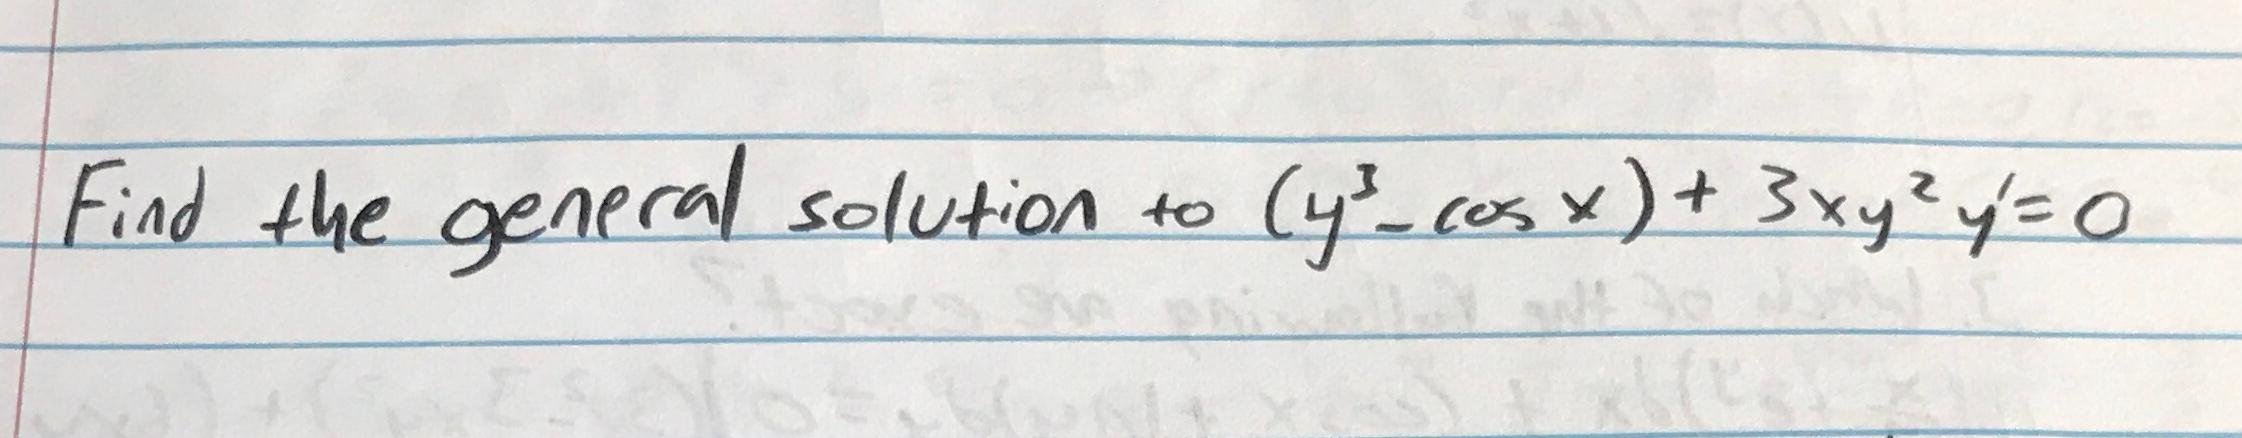 Find the general solution to (y³ - cos x) + 3xy² y' = 0